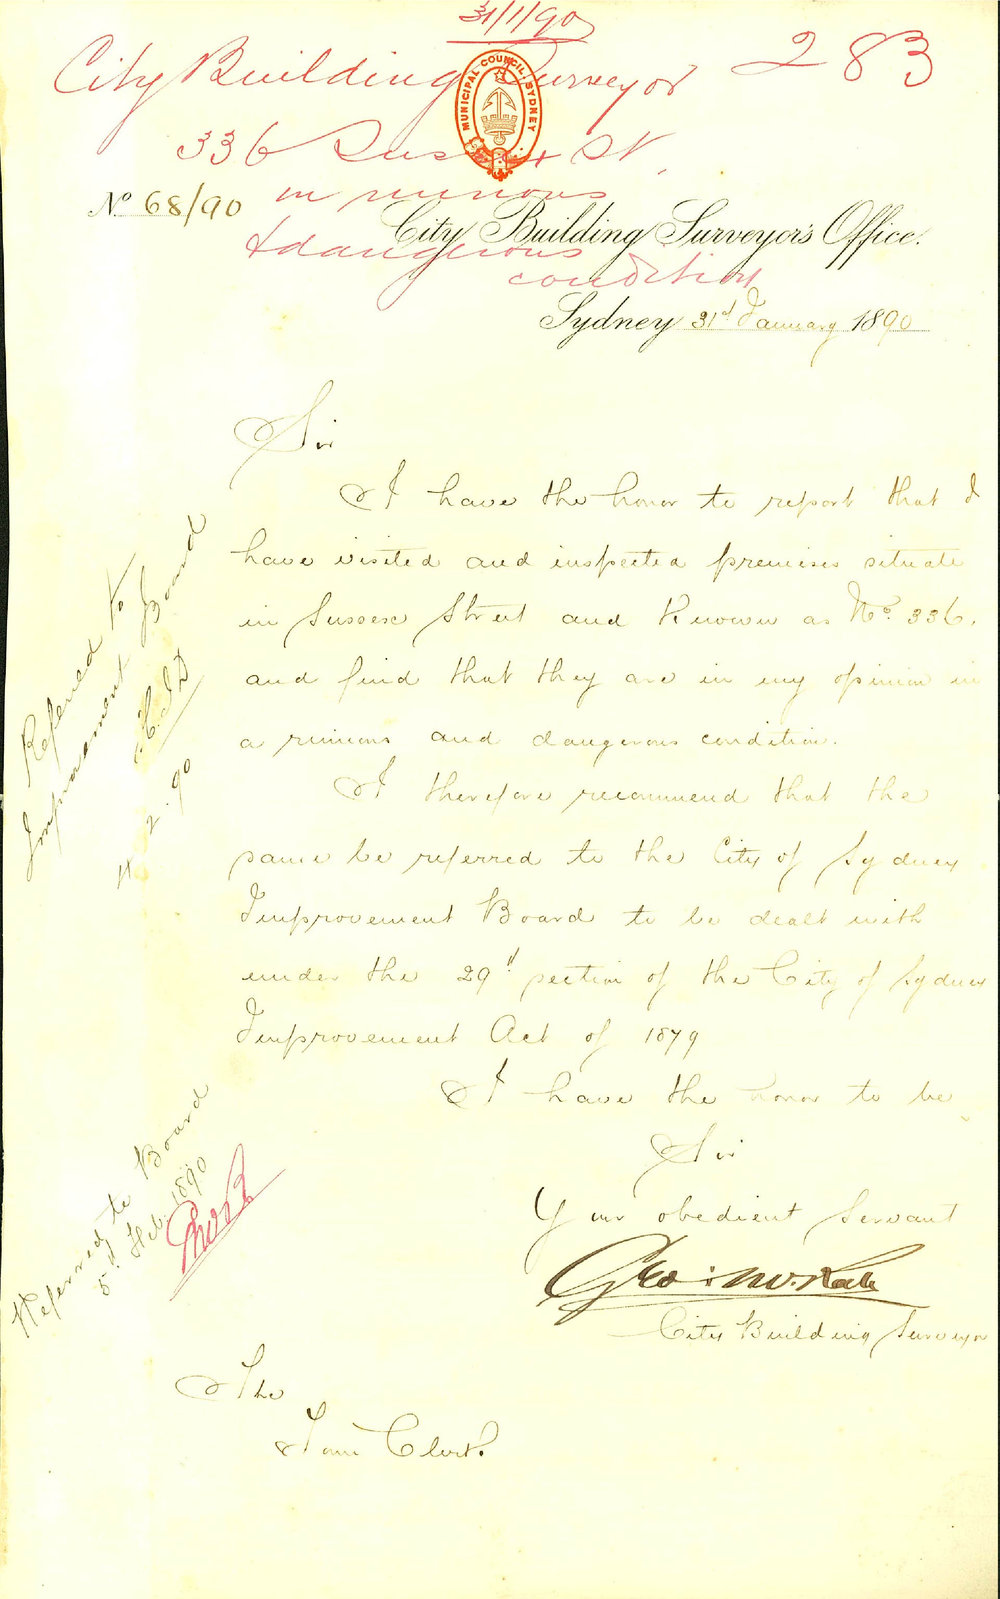 31/1/90
City Building Surveyor 283
336 Sussex St.
in ruinous
& dangerous
condition
MUNICIPAL COUNCIL SYDNEY
No 68/90
City Building Surveyor's Office.
Sydney 31st January 1890
Sir
I have the honor to report that I
have visited and inspected premises situate
in Sussex Street and Known as No. 336.
and find that they are in my opinion in
a ruinous and dangerous condition.
I therefore recommend that the
same be referred to the City of Sydney
Improvement Board to be dealt with
under the 29th section of the City of Sydney
Improvement Act of 1879
I have the honor to be
Sir
Your obedient Servant
Geo:
City Building Surveyor
The
Town Clerk.
Referred to
Improvement Board
2.90
Referred to Board
5th Feb. 1890